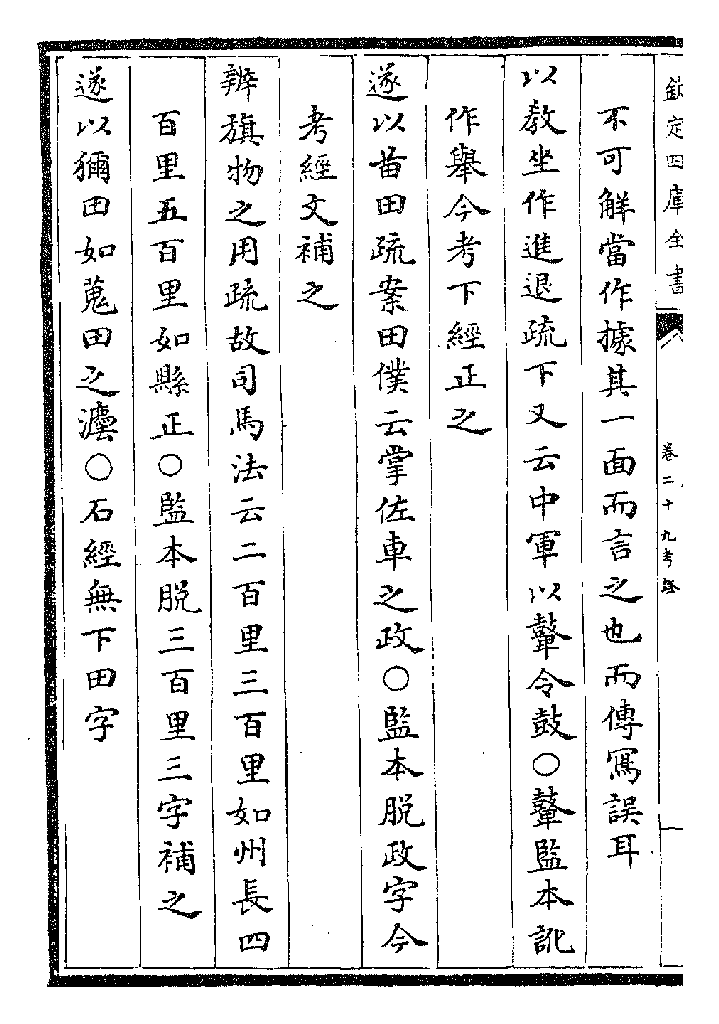 欽定四庫全書
卷二十九考證
不可解當作據其一面而言之也而傳寫誤耳
以教坐作進退疏下又云中軍以鼙令鼓○鼙監本訛
作舉今考下經正之
遂以苗田疏案田僕云掌佐車之政○監本脱政字今
考經文補之
辨旗物之用疏故司馬法云二百里三百里如州長四
百里五百里如縣正○監本脱三百里三字補之
遂以獮田如蒐田之灋○石經無下田字